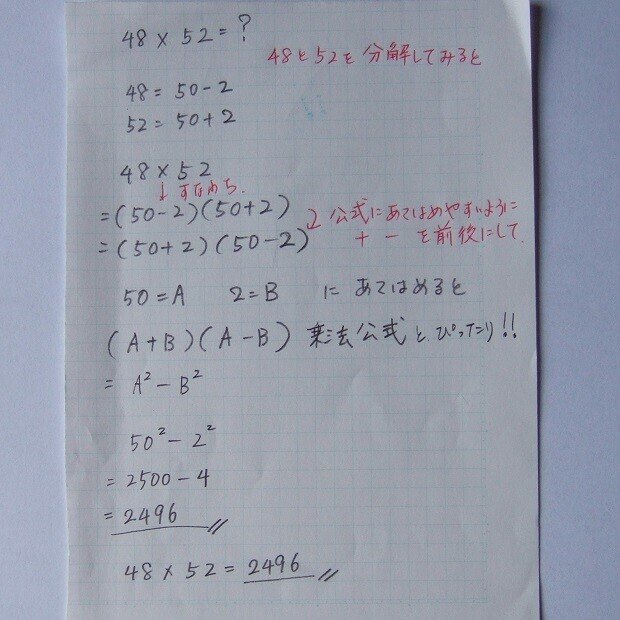 48 × 52 = ?
48と52を分解してみると
48 = 50 - 2
52 = 50 + 2
48 × 52
↓ すなわち.
= (50 - 2)(50 + 2)
↓ 公式にあてはめやすいように
+ - を前後にして.
= (50 + 2)(50 - 2)
50 = A 2 = B にあてはめると
(A + B)(A - B) 乗法公式とぴったり!!
= A² - B²
50² - 2²
= 2500 - 4
= 2496
48 × 52 = 2496